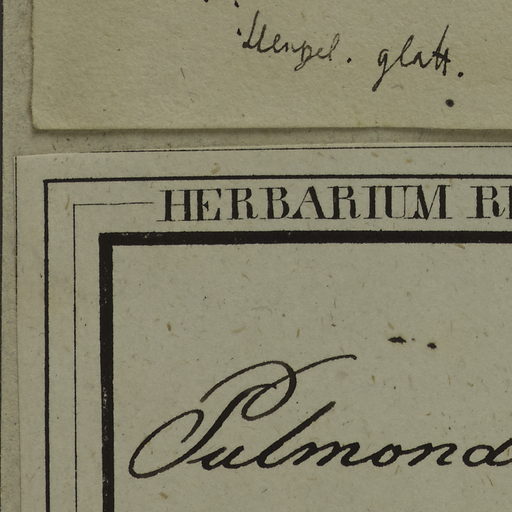 Stengel. glatt.
HERBARIUM
Pulmona